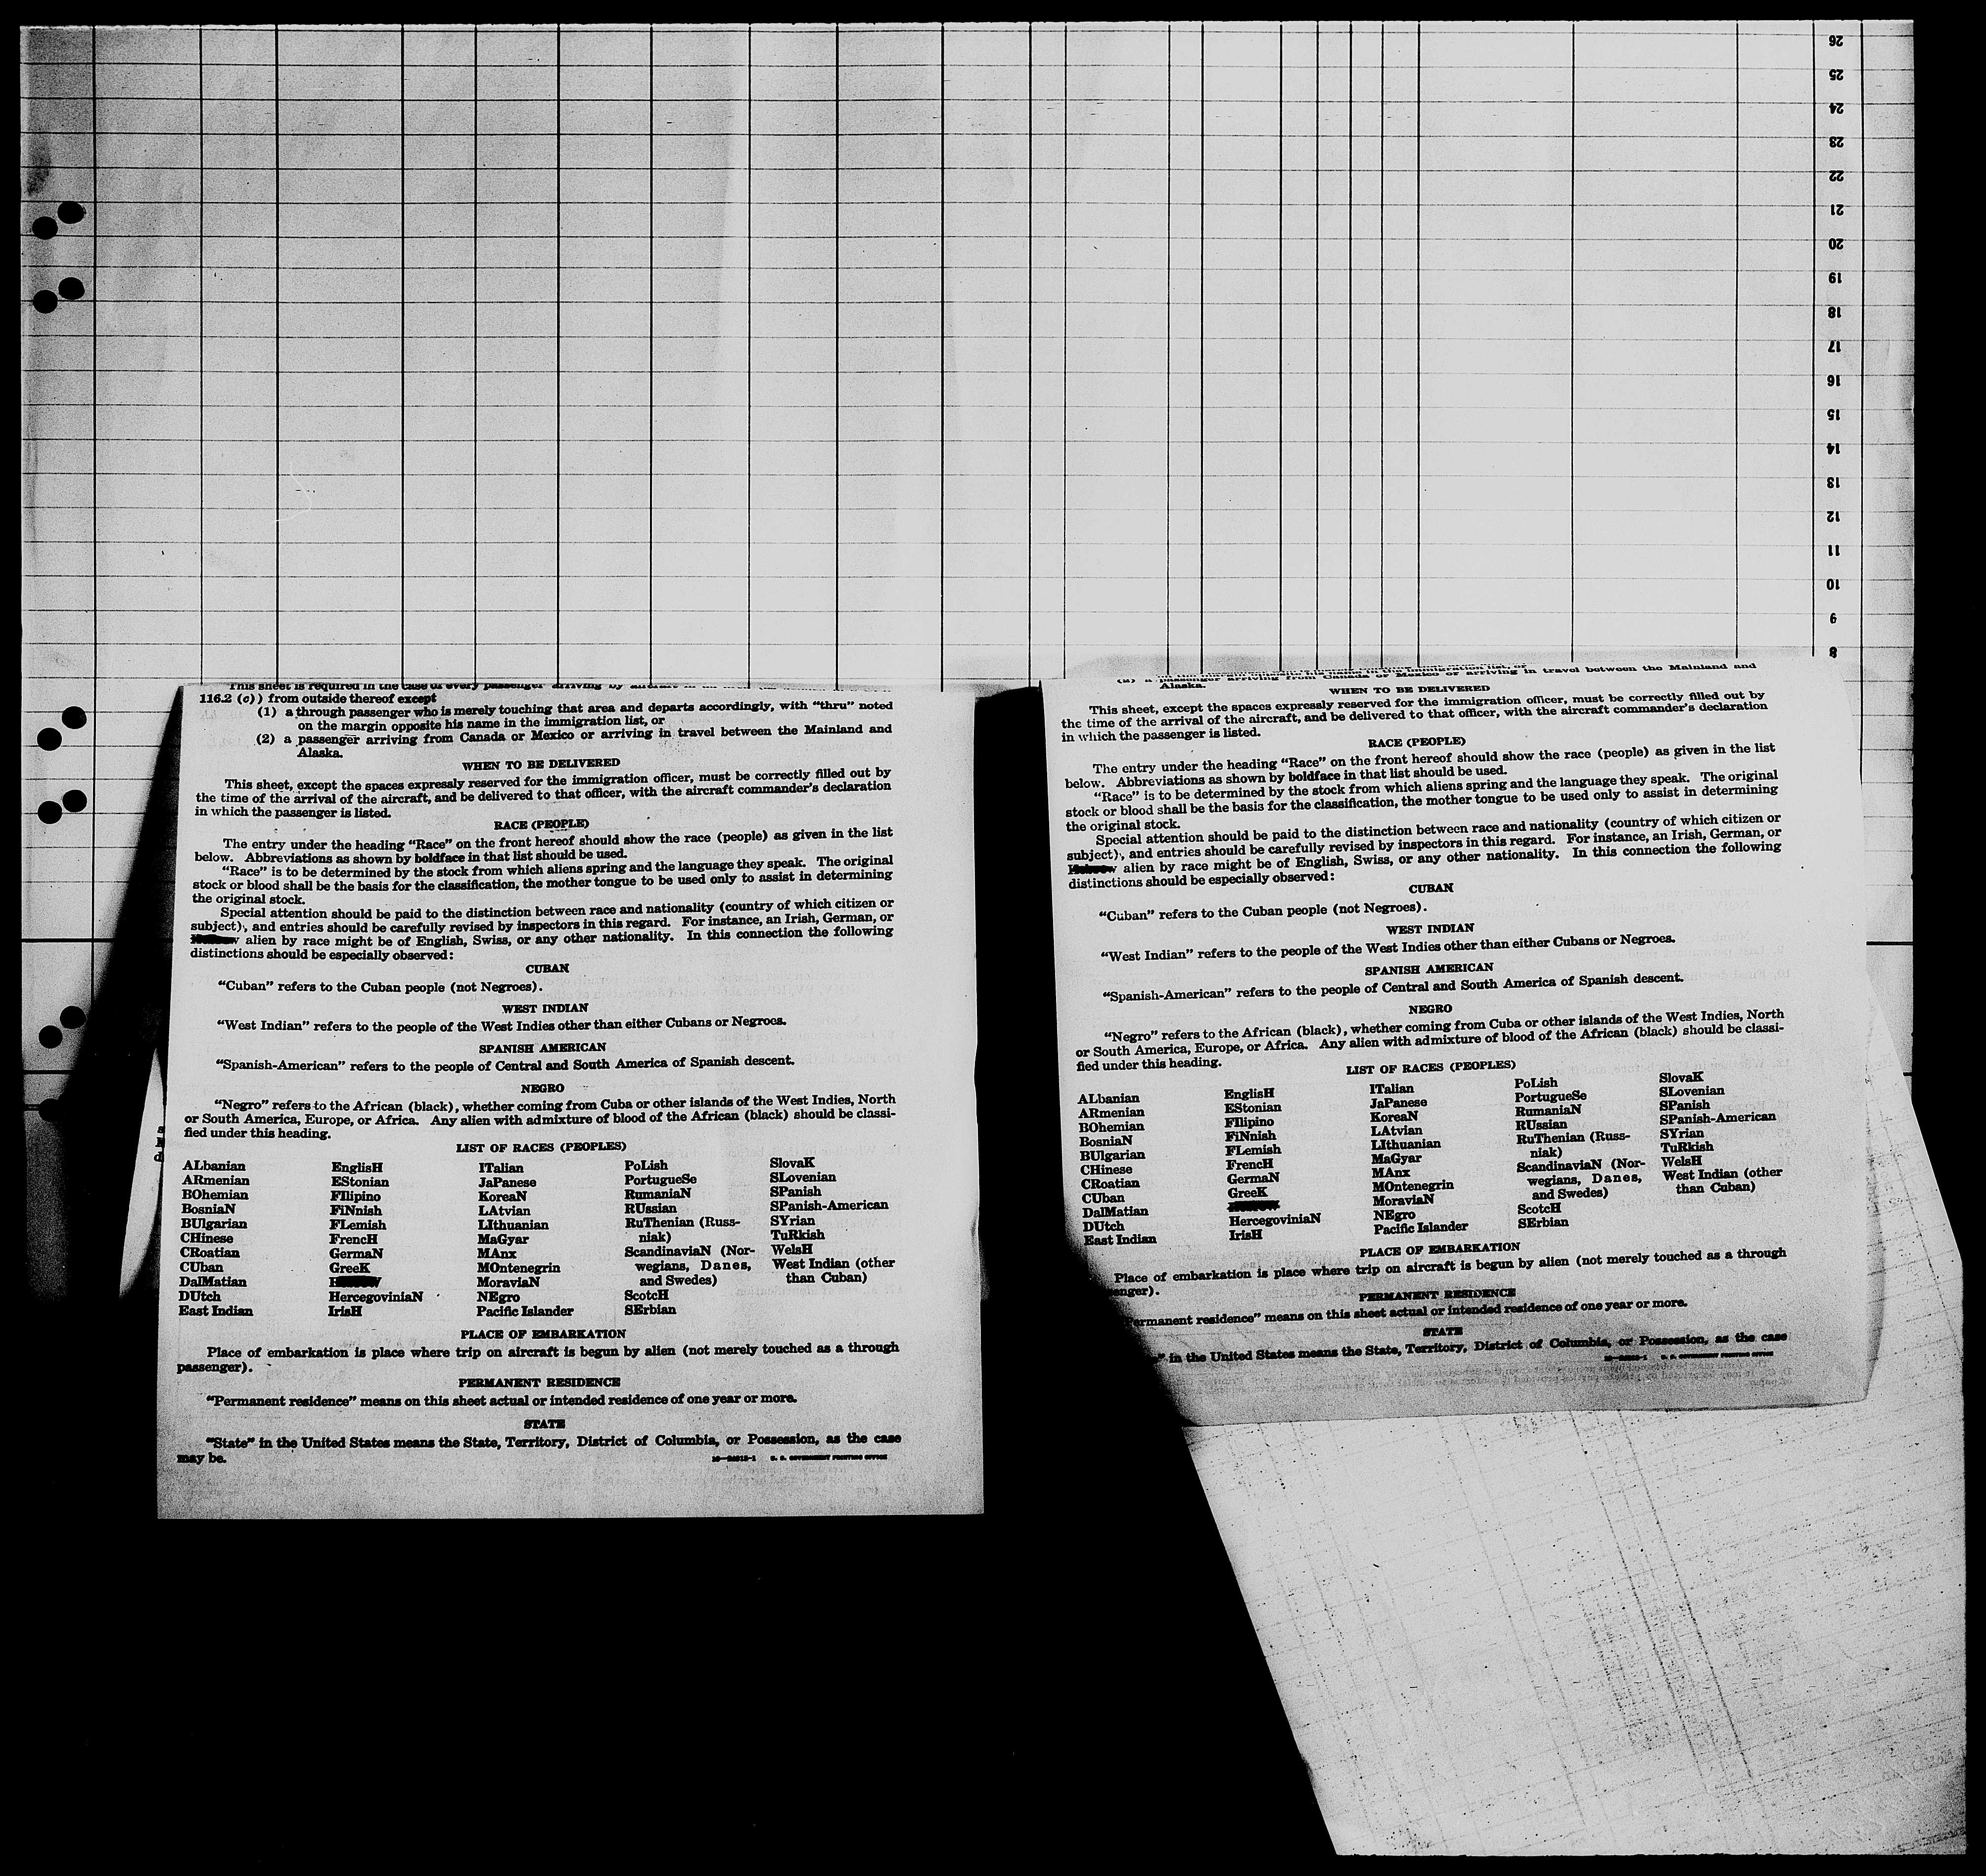 26
25
24
23
22
21
20
19
18
17
16
15
14
13
12
11
10
9
8
This sheet is required in the case of every passenger arriving by aircraft in
116.2 (c)) from outside thereof except
(1) a through passenger who is merely touching that area and departs accordingly, with "thru" noted
on the margin opposite his name in the immigration list, or
(2) a passenger arriving from Canada or Mexico or arriving in travel between the Mainland and
Alaska.
WHEN TO BE DELIVERED
This sheet, except the spaces expressly reserved for the immigration officer, must be correctly filled out by
the time of the arrival of the aircraft, and be delivered to that officer, with the aircraft commander's declaration
in which the passenger is listed.
RACE (PEOPLE)
The entry under the heading "Race" on the front hereof should show the race (people) as given in the list
below. Abbreviations as shown by boldface in that list should be used.
"Race" is to be determined by the stock from which aliens spring and the language they speak. The original
stock or blood shall be the basis for the classification, the mother tongue to be used only to assist in determining
the original stock.
Special attention should be paid to the distinction between race and nationality (country of which citizen or
subject), and entries should be carefully revised by inspectors in this regard. For instance, an Irish, German, or
alien by race might be of English, Swiss, or any other nationality. In this connection the following
distinctions should be especially observed:
CUBAN
"Cuban" refers to the Cuban people (not Negroes).
WEST INDIAN
"West Indian" refers to the people of the West Indies other than either Cubans or Negroes.
SPANISH AMERICAN
"Spanish-American" refers to the people of Central and South America of Spanish descent.
NEGRO
"Negro" refers to the African (black), whether coming from Cuba or other islands of the West Indies, North
or South America, Europe, or Africa. Any alien with admixture of blood of the African (black) should be classi-
fied under this heading.
LIST OF RACES (PEOPLES)
ALbanian
ARmenian
BOhemian
BosniaN
BUlgarian
CHinese
CRoatian
CUban
DalMatian
DUtch
East Indian
EnglisH
EStonian
FIlipino
FiNnish
FLemish
FrencH
GermaN
GreeK
HercegoviniaN
IrisH
ITalian
JaPanese
KoreaN
LAtvian
LIthuanian
MaGyar
MAnx
MOntenegrin
MoraviaN
NEgro
Pacific Islander
PoLish
PortugueSe
RumaniaN
RUssian
RuThenian (Russ-
niak)
ScandinaviaN (Nor-
wegians, Danes,
and Swedes)
ScotcH
SErbian
SlovaK
SLovenian
SPanish
SPanish-American
SYrian
TuRkish
WelsH
West Indian (other
than Cuban)
PLACE OF EMBARKATION
Place of embarkation is place where trip on aircraft is begun by alien (not merely touched as a through
passenger).
PERMANENT RESIDENCE
"Permanent residence" means on this sheet actual or intended residence of one year or more.
STATE
"State" in the United States means the State, Territory, District of Columbia, or Possession, as the case
may be.
U. S. GOVERNMENT PRINTING OFFICE
(2) a passenger arriving from Canada or Mexico or arriving in travel between the Mainland and
Alaska.
WHEN TO BE DELIVERED
This sheet, except the spaces expressly reserved for the immigration officer, must be correctly filled out by
the time of the arrival of the aircraft, and be delivered to that officer, with the aircraft commander's declaration
in which the passenger is listed.
RACE (PEOPLE)
The entry under the heading "Race" on the front hereof should show the race (people) as given in the list
below. Abbreviations as shown by boldface in that list should be used.
"Race" is to be determined by the stock from which aliens spring and the language they speak. The original
stock or blood shall be the basis for the classification, the mother tongue to be used only to assist in determining
the original stock.
Special attention should be paid to the distinction between race and nationality (country of which citizen or
subject), and entries should be carefully revised by inspectors in this regard. For instance, an Irish, German, or
alien by race might be of English, Swiss, or any other nationality. In this connection the following
distinctions should be especially observed:
CUBAN
"Cuban" refers to the Cuban people (not Negroes).
WEST INDIAN
"West Indian" refers to the people of the West Indies other than either Cubans or Negroes.
SPANISH AMERICAN
"Spanish-American" refers to the people of Central and South America of Spanish descent.
NEGRO
"Negro" refers to the African (black), whether coming from Cuba or other islands of the West Indies, North
or South America, Europe, or Africa. Any alien with admixture of blood of the African (black) should be classi-
fied under this heading.
LIST OF RACES (PEOPLES)
ALbanian
ARmenian
BOhemian
BosniaN
BUlgarian
CHinese
CRoatian
CUban
DalMatian
DUtch
East Indian
EnglisH
EStonian
FIlipino
FiNnish
FLemish
FrencH
GermaN
GreeK
HercegoviniaN
IrisH
ITalian
JaPanese
KoreaN
LAtvian
LIthuanian
MaGyar
MAnx
MOntenegrin
MoraviaN
NEgro
Pacific Islander
PoLish
PortugueSe
RumaniaN
RUssian
RuThenian (Russ-
niak)
ScandinaviaN (Nor-
wegians, Danes,
and Swedes)
ScotcH
SErbian
SlovaK
SLovenian
SPanish
SPanish-American
SYrian
TuRkish
WelsH
West Indian (other
than Cuban)
PLACE OF EMBARKATION
Place of embarkation is place where trip on aircraft is begun by alien (not merely touched as a through
enger).
PERMANENT RESIDENCE
ermanent residence" means on this sheet actual or intended residence of one year or more.
STATE
" in the United States means the State, Territory, District of Columbia, or Possession, as the case
U. S. GOVERNMENT PRINTING OFFICE